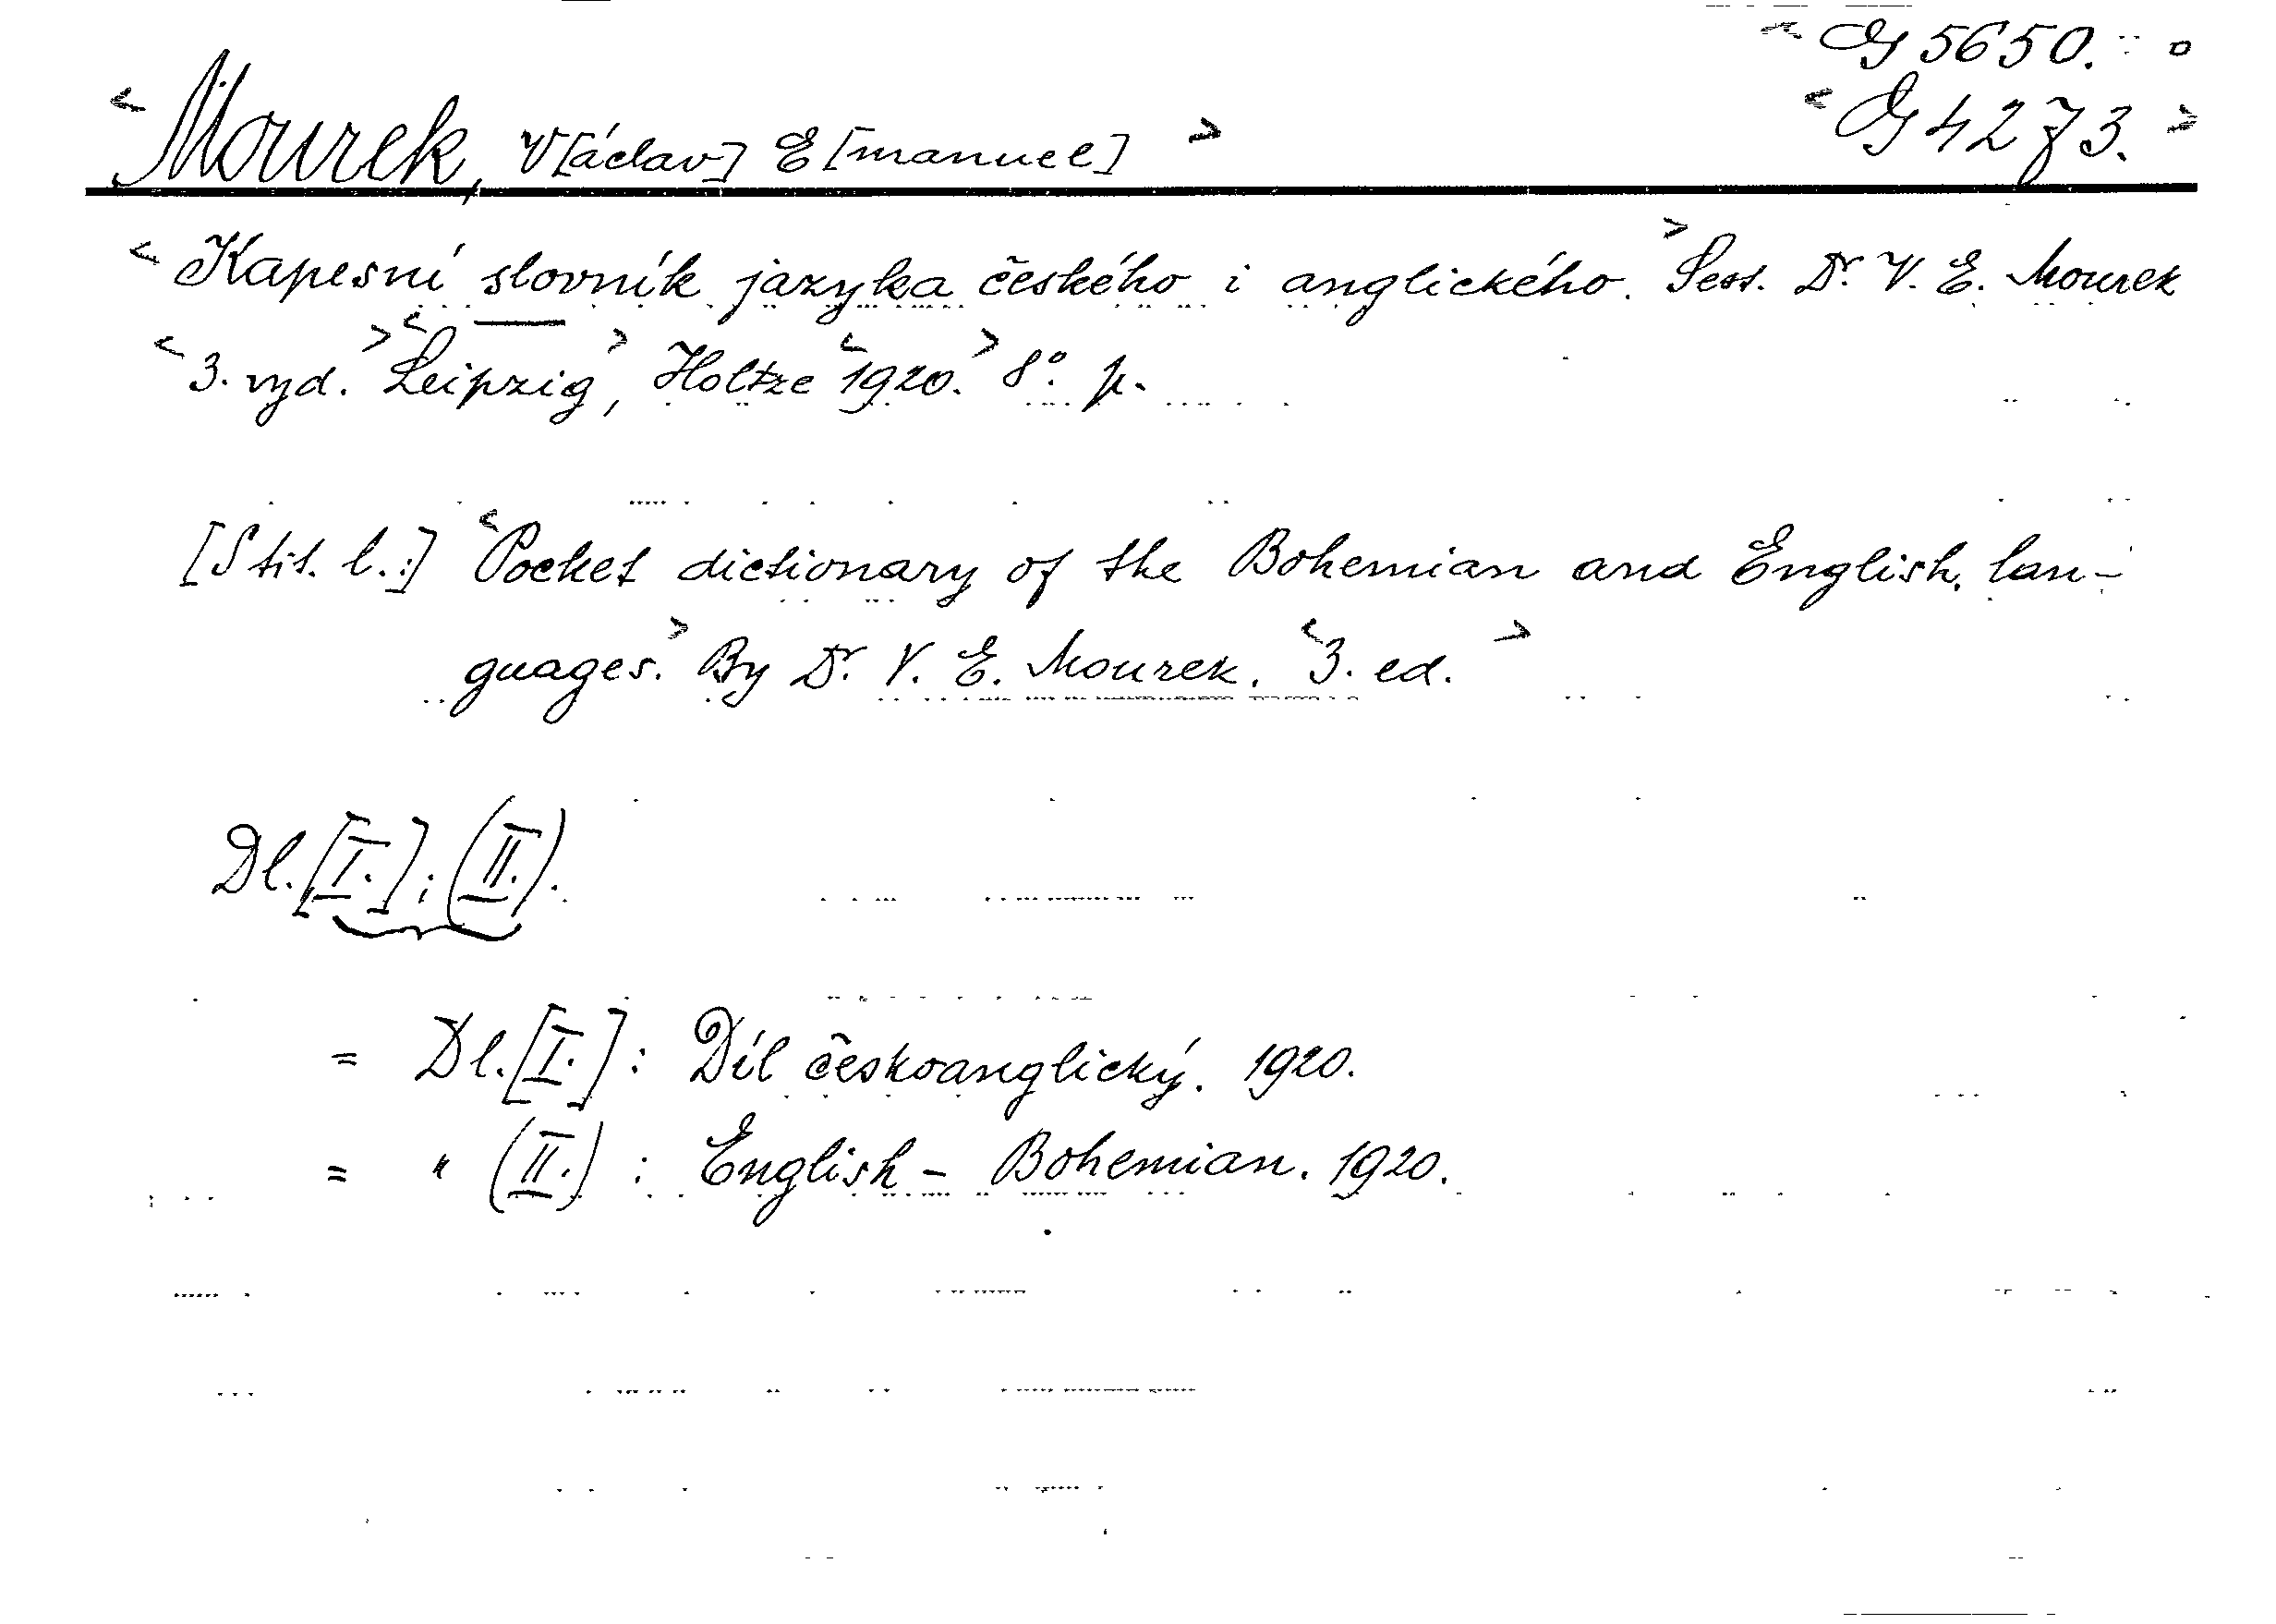 G 5650.
<Mourek, V[áclav] E[manuel]> <G 4273.>
<Kapesní slovník jazyka českého i anglického.> Sest. Dr. V. E. Mourek
<3. vyd.> <Leipzig>, Holtze <1920.> 8°. p.
[S tit. l.:] <Pocket dictionary of the Bohemian and English lan-
guages.> By Dr. V. E. Mourek. <3. ed.>
Dl.[I.]; (II.).
= Dl.[I.]: Díl českoanglický. 1920.
= " (II.): English – Bohemian. 1920.